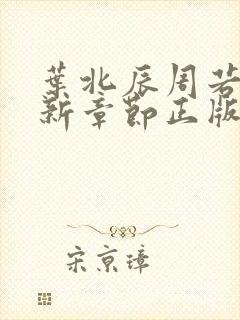 葉北辰周若
新章節正版
宋京璋